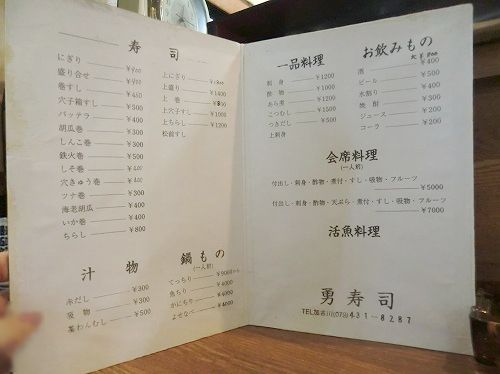 寿司
にぎり ¥900
盛り合せ ¥900
巻すし ¥450
穴子箱すし ¥500
バッテラ ¥400
胡瓜巻 ¥300
しんこ巻 ¥300
鉄火巻 ¥500
しそ巻 ¥300
穴きゅう巻 ¥400
ツナ巻 ¥300
海老胡瓜 ¥400
いか巻 ¥400
ちらし ¥800
上にぎり
上盛り ¥1400
上巻
上穴子すし ¥1000
上ちらし ¥1200
松前すし
汁物
赤だし ¥300
吸物 ¥300
茶わんむし ¥500
鍋もの
(一人前)
てっちり ¥9000から
魚ちり ¥4000
かにちり ¥4000
よせなべ ¥4000
一品料理
刺身 ¥1200
酢物 ¥1000
あら煮 ¥1200
こつむし ¥1500
つきだし ¥500
上刺身
お飲みもの
酒 ¥400
ビール ¥500
水割り ¥400
焼酎 ¥300
ジュース ¥200
コーラ ¥200
会席料理
(一人前)
付出し・刺身・酢物・煮付・すし・吸物・フルーツ
¥5000
付出し・刺身・酢物・天ぷら・煮付・すし・吸物・フルーツ
¥7000
活魚料理
勇寿司
TEL加古川(079)431-8287